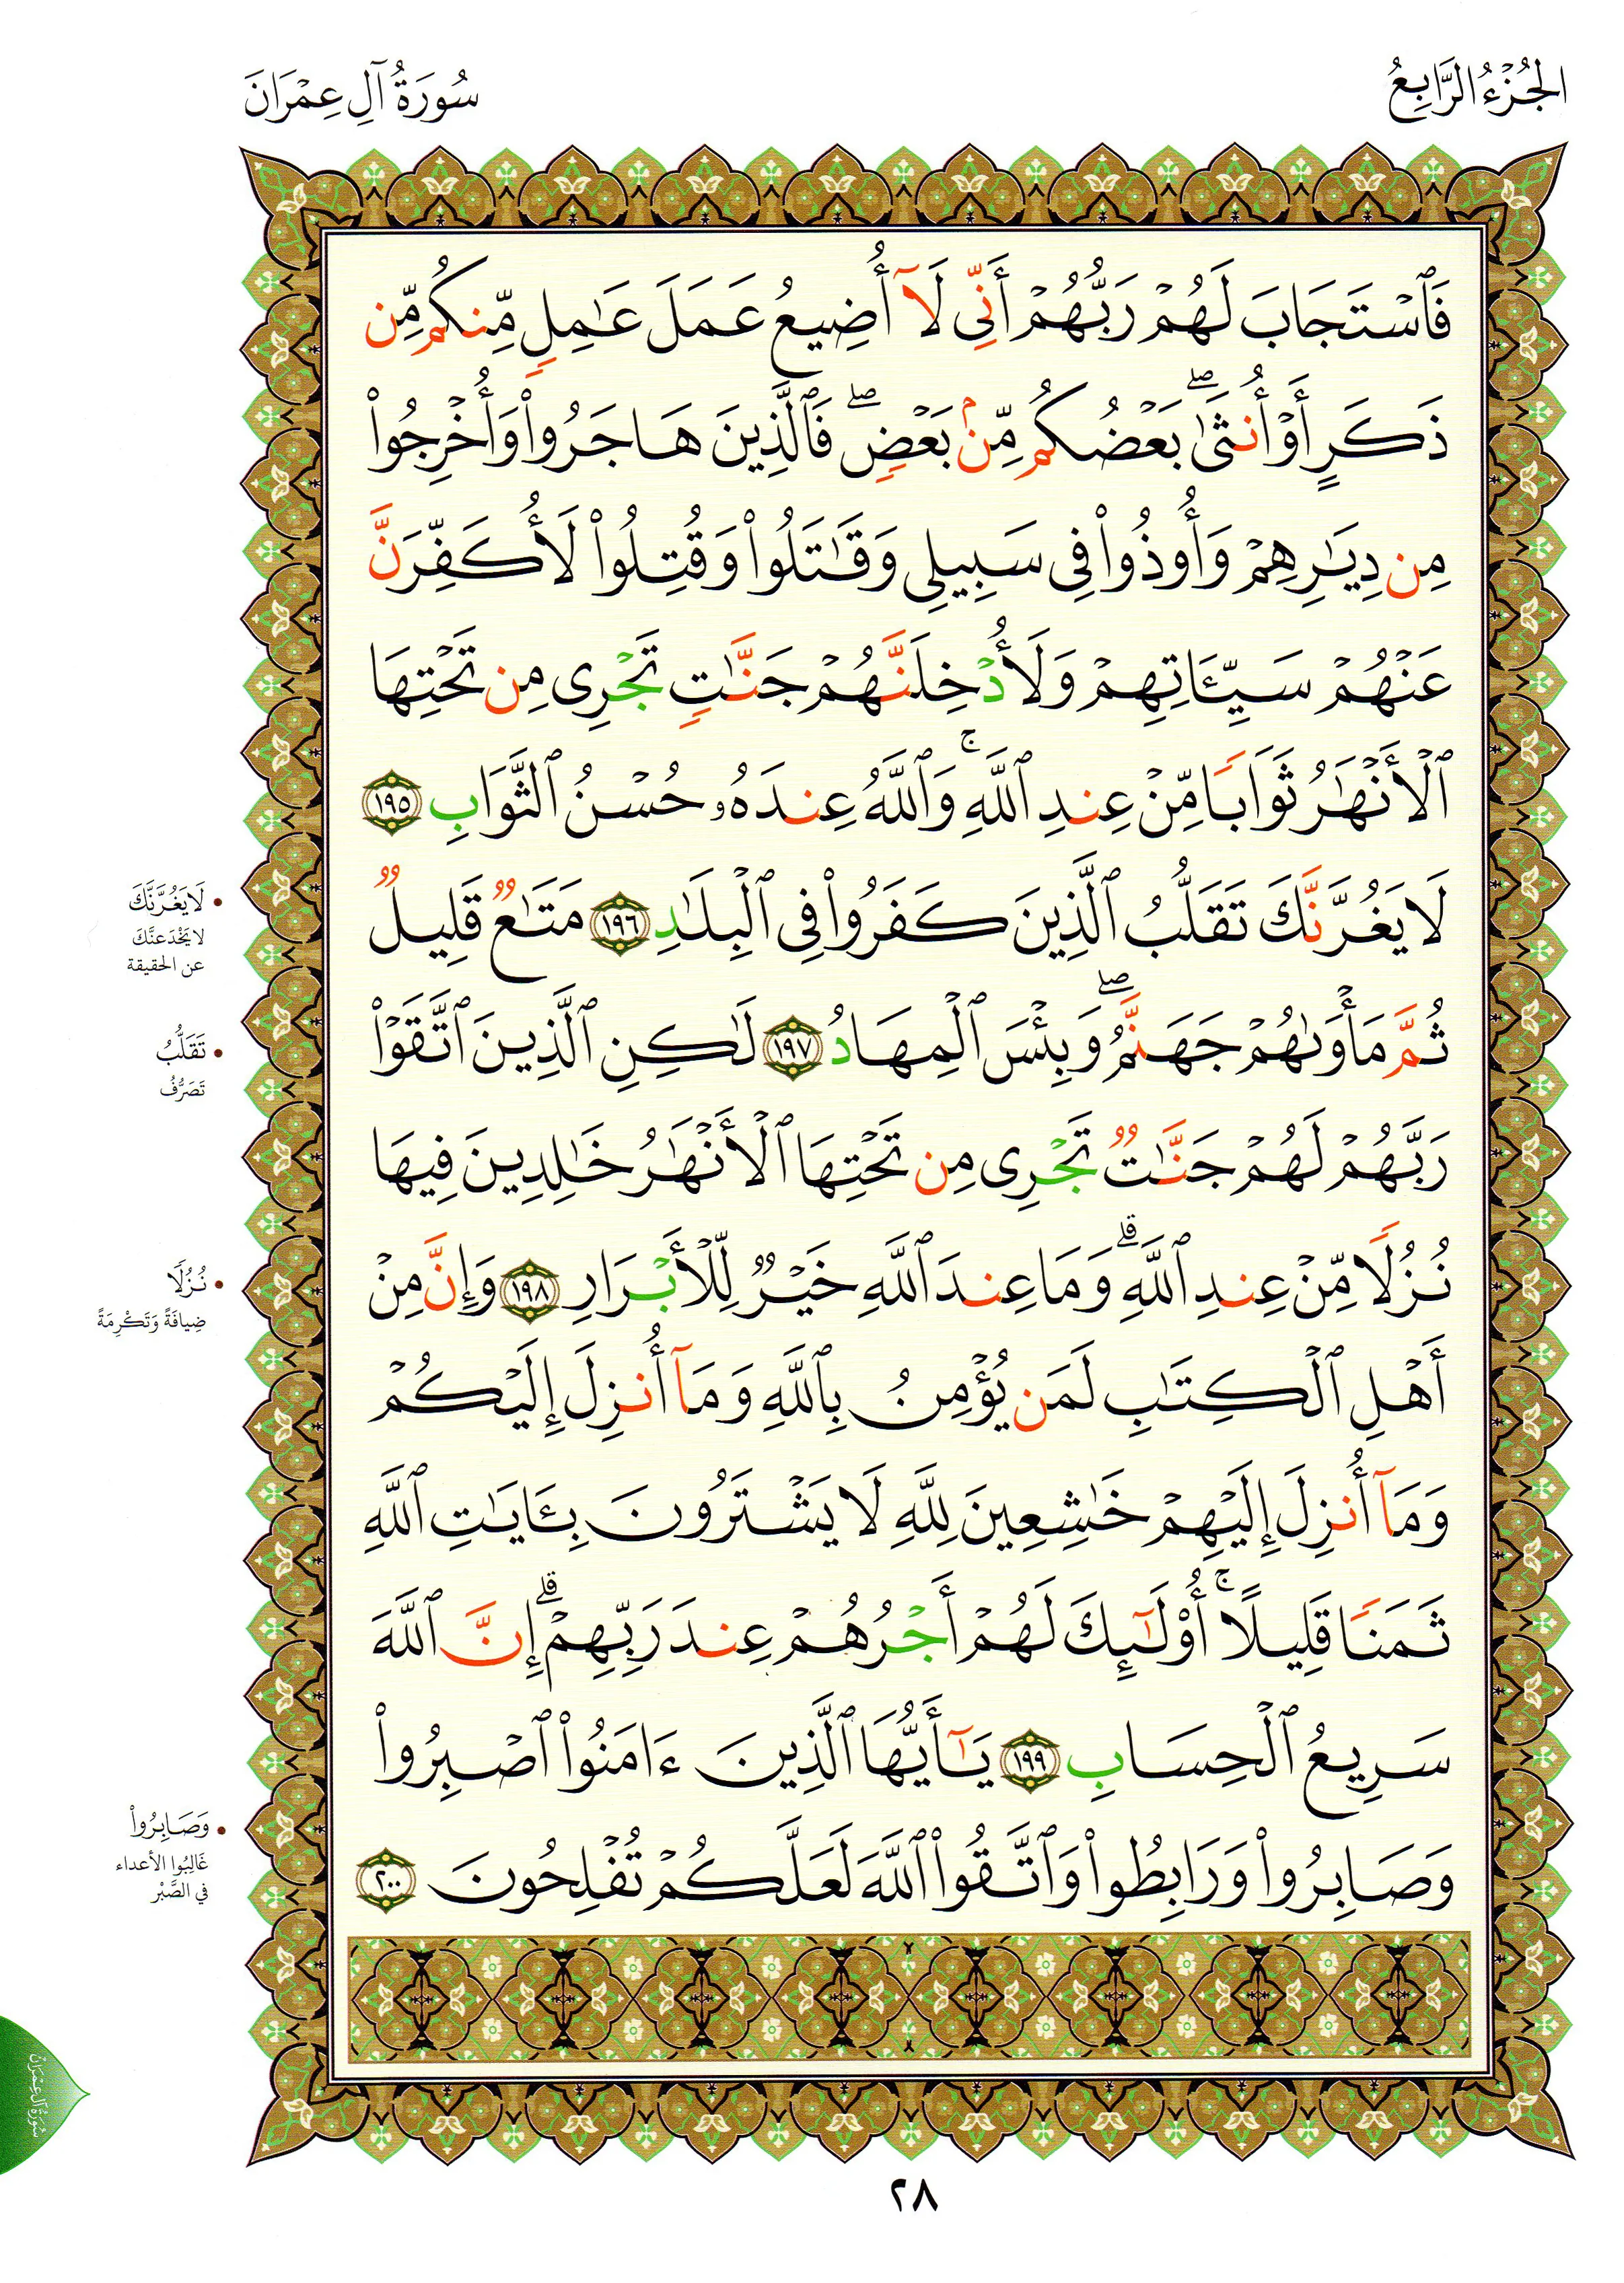 الجُزْءُ الرَّابِعُ
سُورَةُ آلِ عِمْرَانَ
فَٱسْتَجَابَ لَهُمْ رَبُّهُمْ أَنِّى لَآ أُضِيعُ عَمَلَ عَٰمِلٍ مِّنكُم مِّن
ذَكَرٍ أَوْ أُنثَىٰ ۖ بَعْضُكُم مِّنۢ بَعْضٍ ۖ فَٱلَّذِينَ هَاجَرُوا۟ وَأُخْرِجُوا۟
مِن دِيَٰرِهِمْ وَأُوذُوا۟ فِى سَبِيلِى وَقَٰتَلُوا۟ وَقُتِلُوا۟ لَأُكَفِّرَنَّ
عَنْهُمْ سَيِّـَٔاتِهِمْ وَلَأُدْخِلَنَّهُمْ جَنَّٰتٍ تَجْرِى مِن تَحْتِهَا
ٱلْأَنْهَٰرُ ثَوَابًا مِّنْ عِندِ ٱللَّهِ ۚ وَٱللَّهُ عِندَهُۥ حُسْنُ ٱلثَّوَابِ ١٩٥
لَا يَغُرَّنَّكَ تَقَلُّبُ ٱلَّذِينَ كَفَرُوا۟ فِى ٱلْبِلَٰدِ ١٩٦ مَتَٰعٌ قَلِيلٌ
ثُمَّ مَأْوَىٰهُمْ جَهَنَّمُ ۖ وَبِئْسَ ٱلْمِهَادُ ١٩٧ لَٰكِنِ ٱلَّذِينَ ٱتَّقَوْا۟
رَبَّهُمْ لَهُمْ جَنَّٰتٌ تَجْرِى مِن تَحْتِهَا ٱلْأَنْهَٰرُ خَٰلِدِينَ فِيهَا
نُزُلًا مِّنْ عِندِ ٱللَّهِ ۗ وَمَا عِندَ ٱللَّهِ خَيْرٌ لِّلْأَبْرَارِ ١٩٨ وَإِنَّ مِنْ
أَهْلِ ٱلْكِتَٰبِ لَمَن يُؤْمِنُ بِٱللَّهِ وَمَآ أُنزِلَ إِلَيْكُمْ
وَمَآ أُنزِلَ إِلَيْهِمْ خَٰشِعِينَ لِلَّهِ لَا يَشْتَرُونَ بِـَٔايَٰتِ ٱللَّهِ
ثَمَنًا قَلِيلًا ۚ أُو۟لَٰٓئِكَ لَهُمْ أَجْرُهُمْ عِندَ رَبِّهِمْ ۗ إِنَّ ٱللَّهَ
سَرِيعُ ٱلْحِسَابِ ١٩٩ يَٰٓأَيُّهَا ٱلَّذِينَ ءَامَنُوا۟ ٱصْبِرُوا۟
وَصَابِرُوا۟ وَرَابِطُوا۟ وَٱتَّقُوا۟ ٱللَّهَ لَعَلَّكُمْ تُفْلِحُونَ ٢٠٠
• لَا يَغُرَّنَّكَ
لا يَخْدَعنَّكَ
عن الحقيقة
• تَقَلُّبُ
تَصَرُّفُ
• نُزُلًا
ضِيافَةً وَتَكْرِمَةً
• وَصَابِرُوا۟
غَالِبُوا الأعداء
في الصَّبْر
سُورَةُ آلِ عِمْرَانَ
٢٨